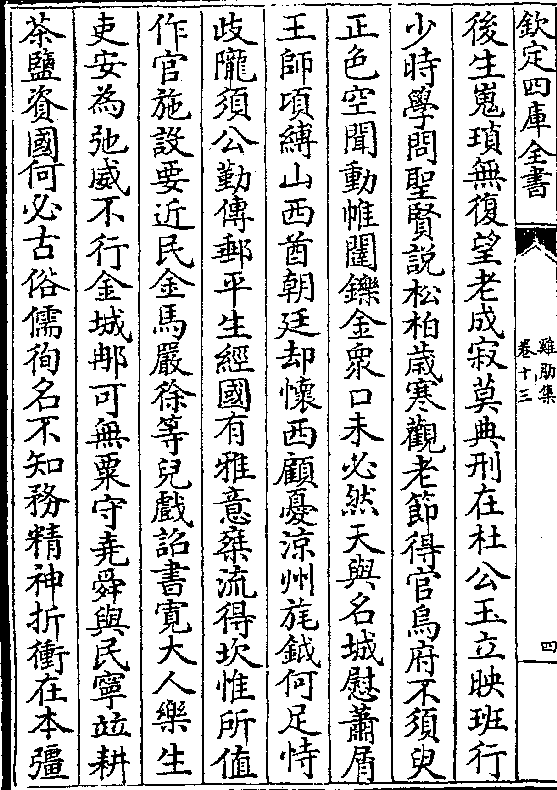 欽定四庫全書
雞肋集
卷十三
四
後生嵬瑣無復望老成寂莫典刑在杜公玉立映班行
少時學問聖賢説松柏歳寒觀老節得官烏府不須臾
正色空聞動帷闥鑠金衆口未必然天與名城慰蕭屑
王師頃縛山西酋朝廷却懷西顧憂涼州旄鉞何足恃
歧隴須公勤傳郵平生經國有雅意椉流得坎惟所值
作官施設要近民金馬嚴徐等兒戲詔書寛大人樂生
吏安為弛威不行金城𨚗可無粟守堯舜與民寧竝耕
茶鹽資國何必古俗儒徇名不知務精神折衝在本彊